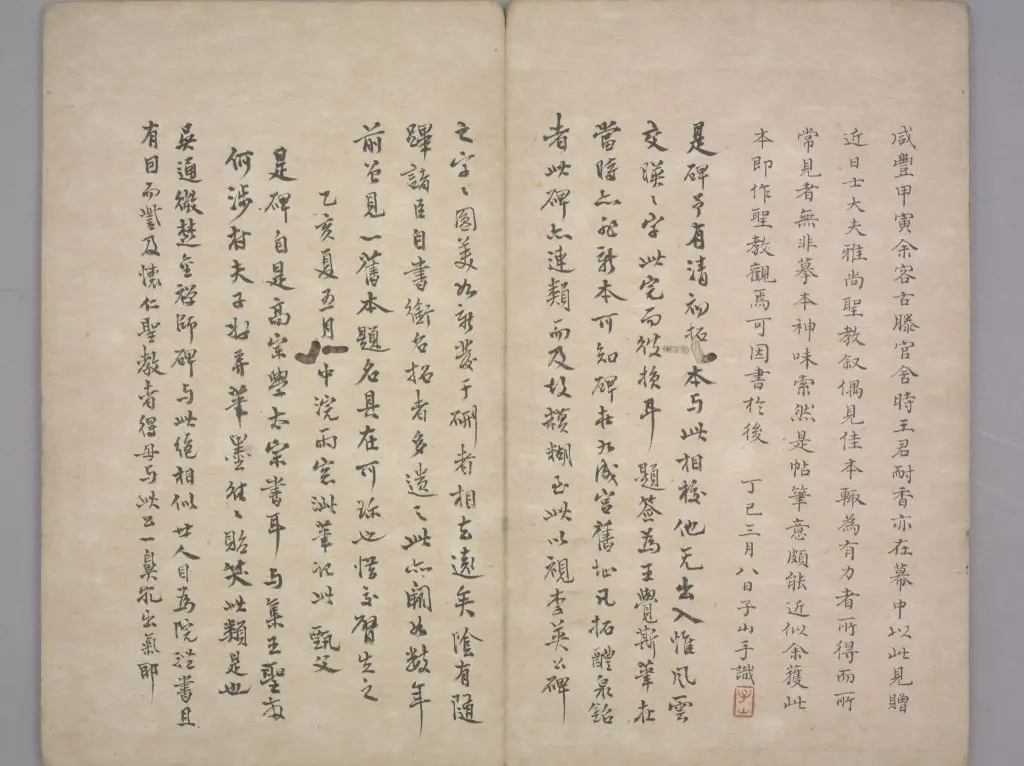 咸豐甲寅余客古滕官舍時王君耐香亦在幕中以此見贈
近日士大夫雅尚聖教叙偶見佳本輒為有力者所得而所
常見者無非摹本神味索然是帖筆意頗能近似余獲此
本即作聖教觀焉可因書於後 丁巳三月八日子山手識
子山
是碑予有清初拓本与此相校他无出入惟風雲
交漢〻字此完而彼损耳 題簽為王覺斯筆在
當時亦非新本可知碑在九成宮舊址凡拓醴泉銘
者此碑亦連類而及故模糊至此以視李英公碑
之字〻圆美如新發于硎者相去遠矣陰有隨
蹕諸臣自書銜名拓者多遺之此亦闕如数年
前曾見一舊本題名具在可珎也惜交臂失之
乙亥夏五月中浣雨窓泚筆記此 甄父
是碑自是高宗學太宗書耳 与集王聖教
何涉村夫子好弄筆墨往〻貽笑此類是也
吳通微楚金禅師碑与此絕相似世人目為院體書且
有因而訾及懷仁聖教者得毋与此公一鼻孔出氣耶